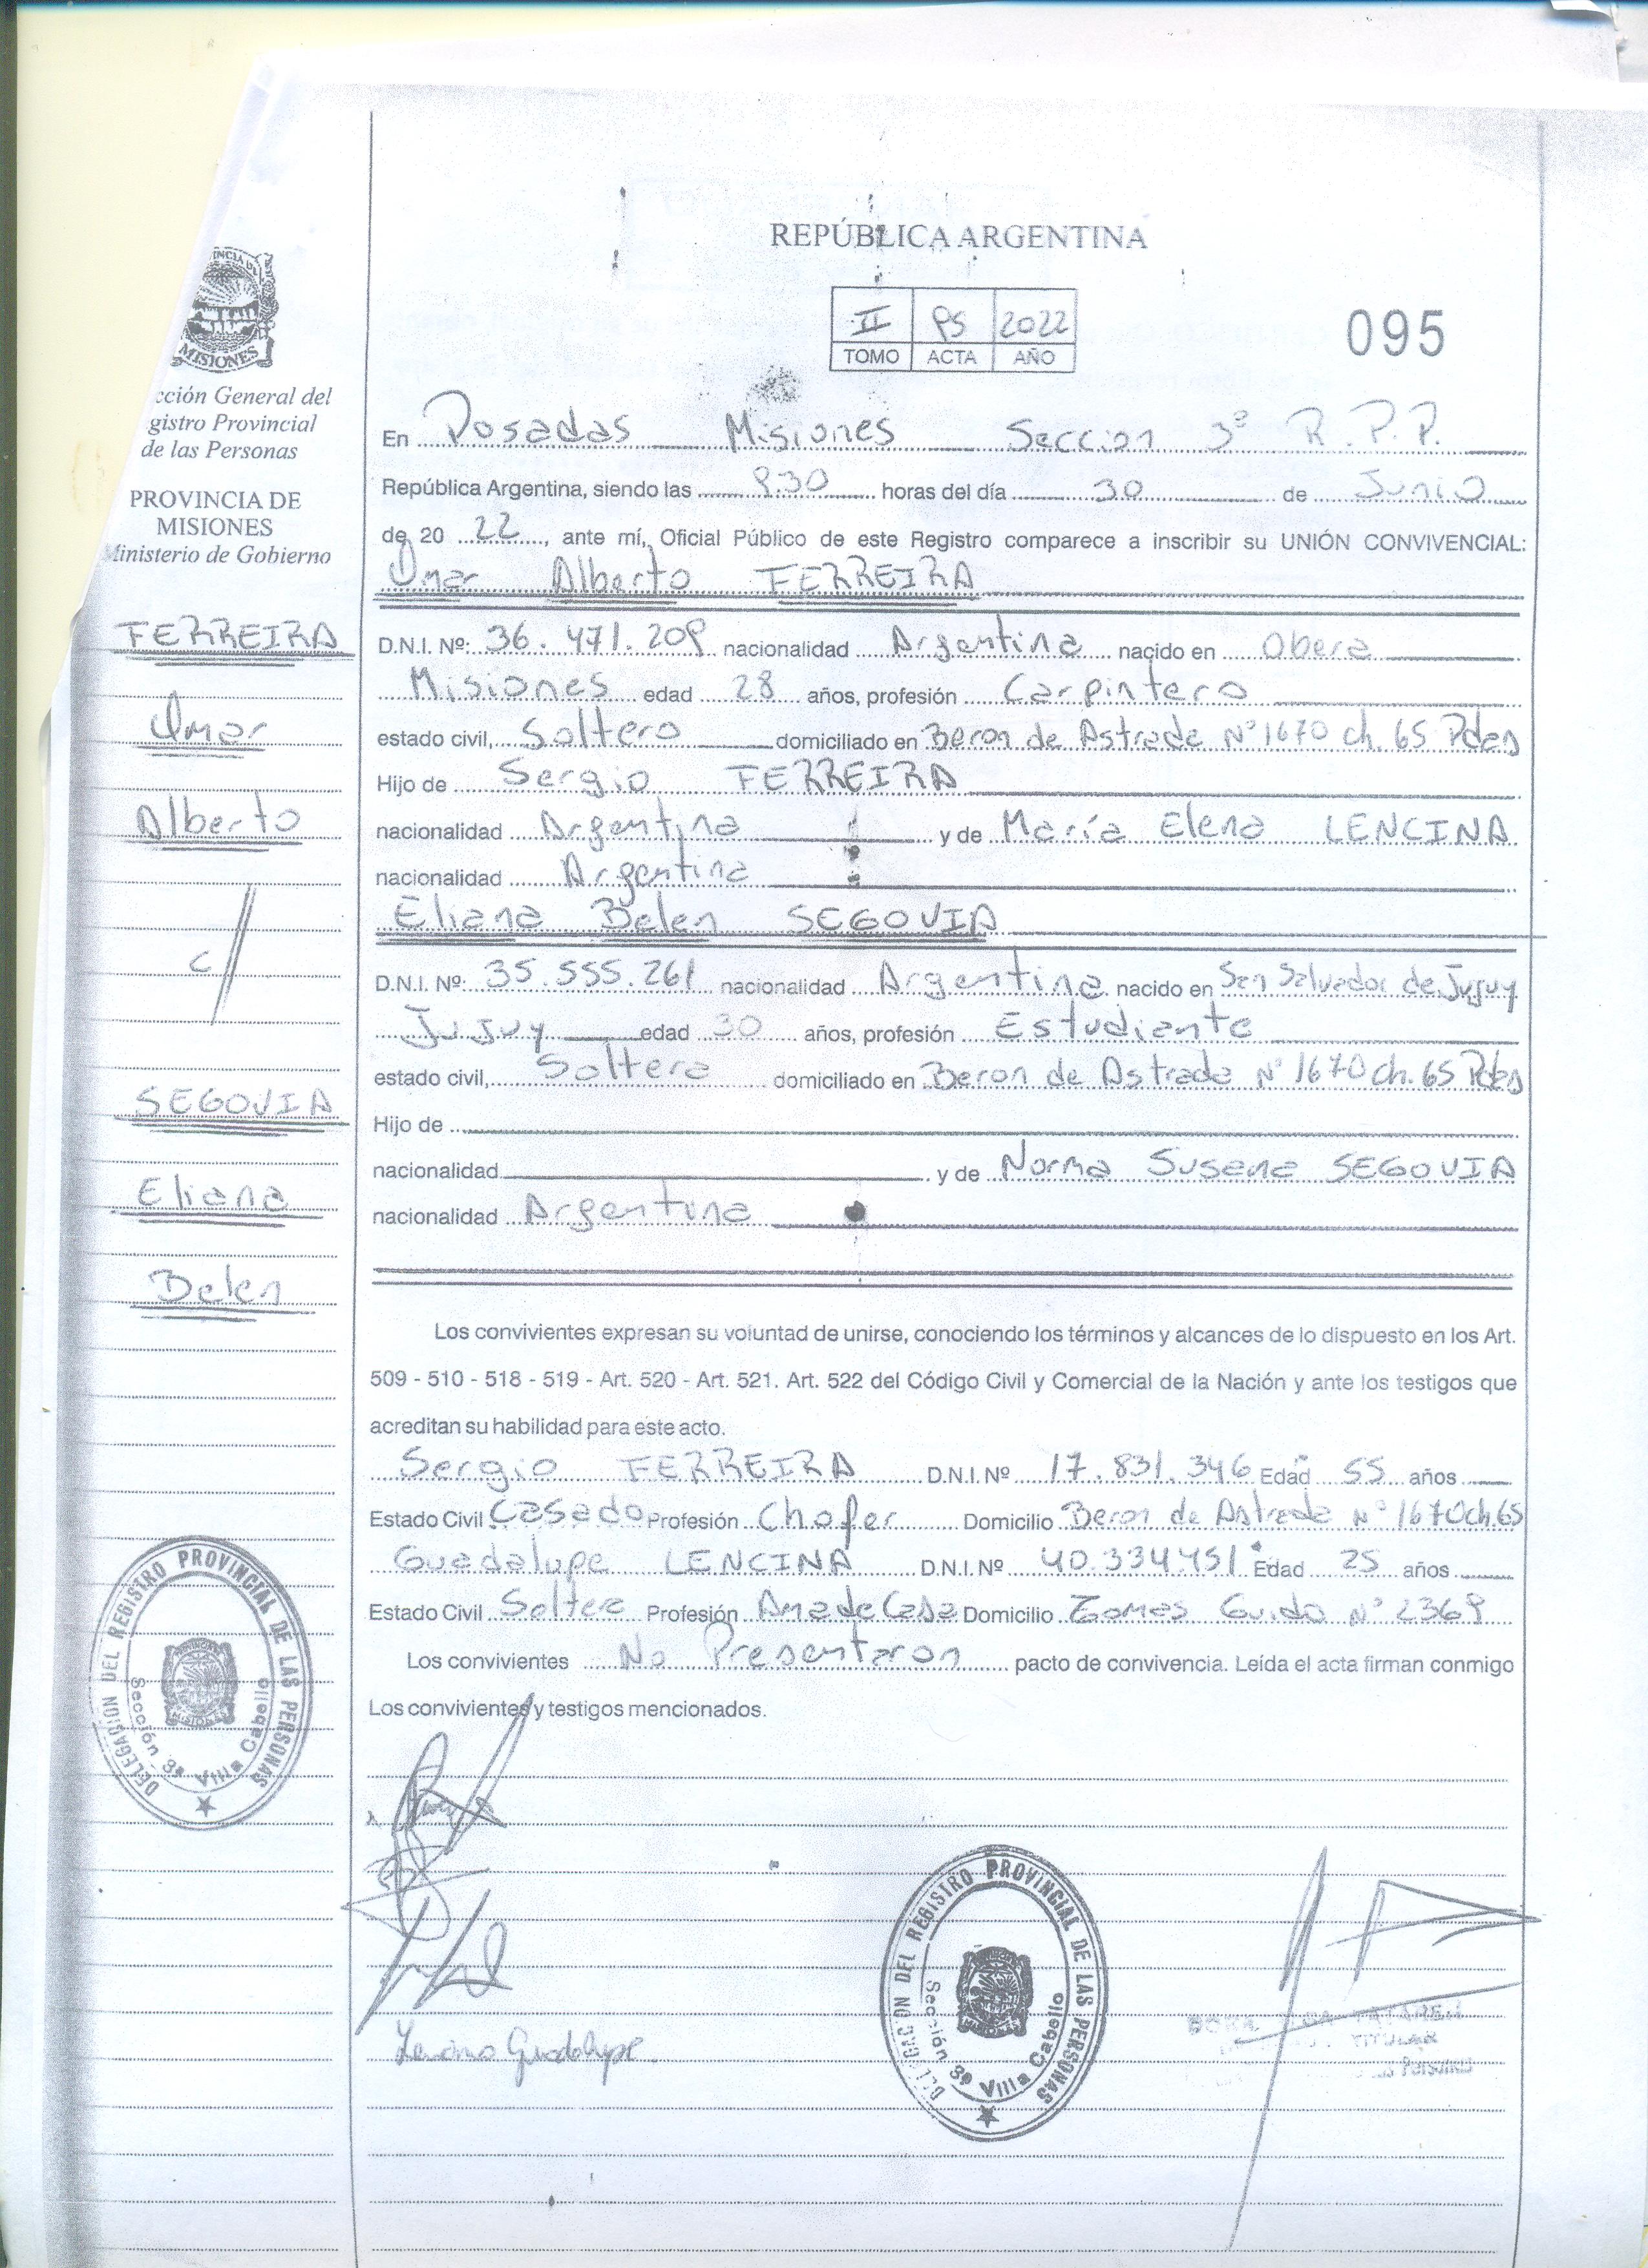 REPÚBLICA ARGENTINA
II 95 2022
TOMO ACTA AÑO
095
MISIONES
cción General del
gistro Provincial
de las Personas
PROVINCIA DE
MISIONES
Ministerio de Gobierno
FERREIRA
Omar
Alberto
c/
SEGOVIA
Eliana
Belen
En Posadas Misiones Seccion 3º R.P.P.
República Argentina, siendo las 9:30 horas del día 30 de Junio
de 20 22, ante mí, Oficial Público de este Registro comparece a inscribir su UNIÓN CONVIVENCIAL:
Omar Alberto FERREIRA
D.N.I. Nº: 36.471.209 nacionalidad Argentina nacido en Obera
Misiones edad 28 años, profesión Carpintero
estado civil, Soltero domiciliado en Beron de Astrada Nº 1670 ch. 65 Pdas
Hijo de Sergio FERREIRA
nacionalidad Argentina y de María Elena LENCINA
nacionalidad Argentina
Eliana Belen SEGOVIA
D.N.I. Nº: 35.555.261 nacionalidad Argentina nacido en San Salvador de Jujuy
Jujuy edad 30 años, profesión Estudiante
estado civil, Soltera domiciliado en Beron de Astrada Nº 1670 ch. 65 Pdas
Hijo de
nacionalidad y de Norma Susana SEGOVIA
nacionalidad Argentina
Los convivientes expresan su voluntad de unirse, conociendo los términos y alcances de lo dispuesto en los Art.
509 - 510 - 518 - 519 - Art. 520 - Art. 521. Art. 522 del Código Civil y Comercial de la Nación y ante los testigos que
acreditan su habilidad para este acto.
Sergio FERREIRA D.N.I. Nº 17.831.346 Edad 55 años
Estado Civil Casado Profesión Chofer Domicilio Beron de Astrada Nº 1670 ch. 65
Guadalupe LENCINA D.N.I. Nº 40.334.451 Edad 25 años
Estado Civil Soltera Profesión Ama de Casa Domicilio Tomas Guido Nº 2369
Los convivientes No Presentaron pacto de convivencia. Leída el acta firman conmigo
Los convivientes y testigos mencionados.
DELEGACIÓN DEL REGISTRO PROVINCIAL DE LAS PERSONAS
Sección 3ª Villa Cabello
Lencina Guadalupe
DELEGACIÓN DEL REGISTRO PROVINCIAL DE LAS PERSONAS
Sección 3ª Villa Cabello
TITULAR